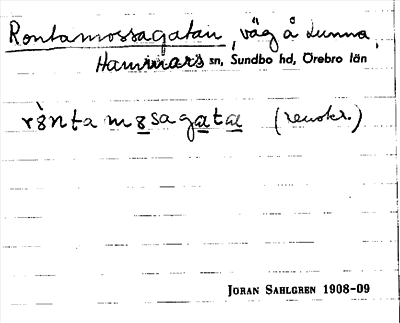 Rontamossagatan, väg å Lunna,
Hammars sn, Sundbo hd, Örebro län
ròntamosagata (renskr.)
JORAN SAHLGREN 1908-09